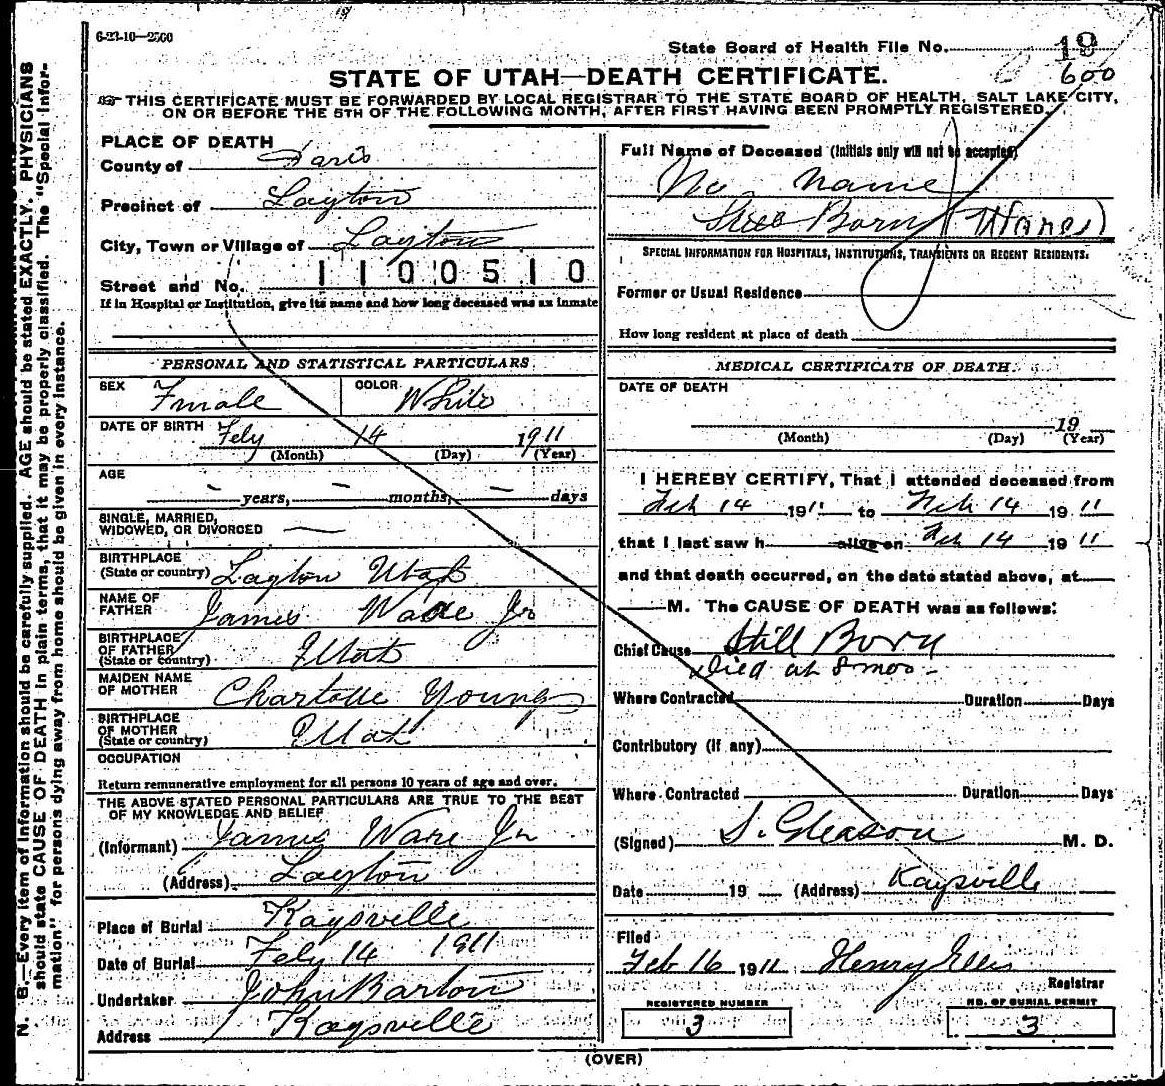 6-23-10—2500
State Board of Health File No. 19
600
STATE OF UTAH—DEATH CERTIFICATE.
THIS CERTIFICATE MUST BE FORWARDED BY LOCAL REGISTRAR TO THE STATE BOARD OF HEALTH, SALT LAKE CITY,
ON OR BEFORE THE 5TH OF THE FOLLOWING MONTH, AFTER FIRST HAVING BEEN PROMPTLY REGISTERED.
PLACE OF DEATH
County of Davis
Precinct of Layton
City, Town or Village of Layton
Street and No. 1100510
If in Hospital or Institution, give its name and how long deceased was as inmate
PERSONAL AND STATISTICAL PARTICULARS
SEX Female COLOR White
DATE OF BIRTH Feby 14 1911
(Month) (Day) (Year)
AGE
- years, - months, - days
SINGLE, MARRIED,
WIDOWED, OR DIVORCED —
BIRTHPLACE
(State or country) Layton Utah
NAME OF
FATHER James Ware Jr
BIRTHPLACE
OF FATHER
(State or country) Utah
MAIDEN NAME
OF MOTHER Charlotte Young
BIRTHPLACE
OF MOTHER
(State or country) Utah
OCCUPATION
Return remunerative employment for all persons 10 years of age and over.
THE ABOVE STATED PERSONAL PARTICULARS ARE TRUE TO THE BEST
OF MY KNOWLEDGE AND BELIEF
(Informant) James Ware Jr
(Address) Layton
Place of Burial Kaysville
Date of Burial Feby 14 1911
Undertaker John Barton
Address Kaysville
Full Name of Deceased (Initials only will not be accepted)
No name
Born (Ware)
SPECIAL INFORMATION FOR HOSPITALS, INSTITUTIONS, TRANSIENTS OR RECENT RESIDENTS.
Former or Usual Residence
How long resident at place of death
MEDICAL CERTIFICATE OF DEATH.
DATE OF DEATH
19
(Month) (Day) (Year)
I HEREBY CERTIFY, That I attended deceased from
Feb 14 1911 to Feb 14 1911
that I last saw h alive on Feb 14 1911
and that death occurred, on the date stated above, at
M. The CAUSE OF DEATH was as follows:
Chief Cause Still Born
Died at 8 mos -
Where Contracted Duration Days
Contributory (if any)
Where Contracted Duration Days
(Signed) S. Gleason M. D.
Date 19 (Address) Kaysville
Filed
Feb 16 1911 Henry Ellis
Registrar
REGISTERED NUMBER
3
NO. OF BURIAL PERMIT
3
(OVER)
N. B.—Every item of information should be carefully supplied. AGE should be stated EXACTLY. PHYSICIANS
should state CAUSE OF DEATH in plain terms, that it may be properly classified. The "Special Infor-
mation" for persons dying away from home should be given in every instance.